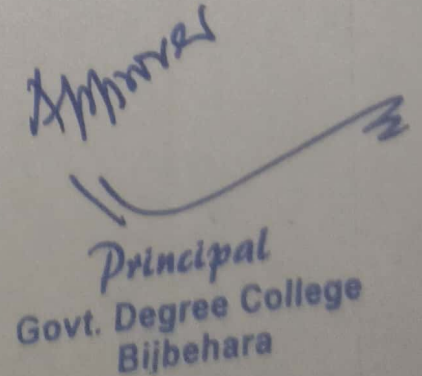 Approved
Principal
Govt. Degree College
Bijbehara